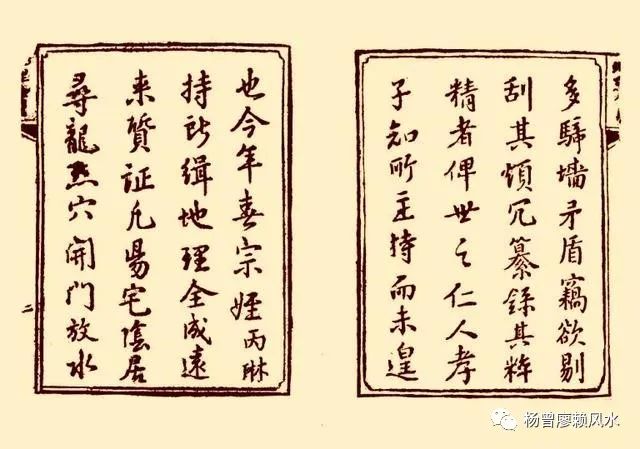 多騎墻矛盾竊欲剔
刮其煩冗纂錄其粹
精者俾世之仁人孝
子知所主持而未遑
也今年春宗姪丙琳
持所緝地理全成遠
来質証凡昜宅陰居
尋龍点穴開門放水
二
杨曾廖赖风水